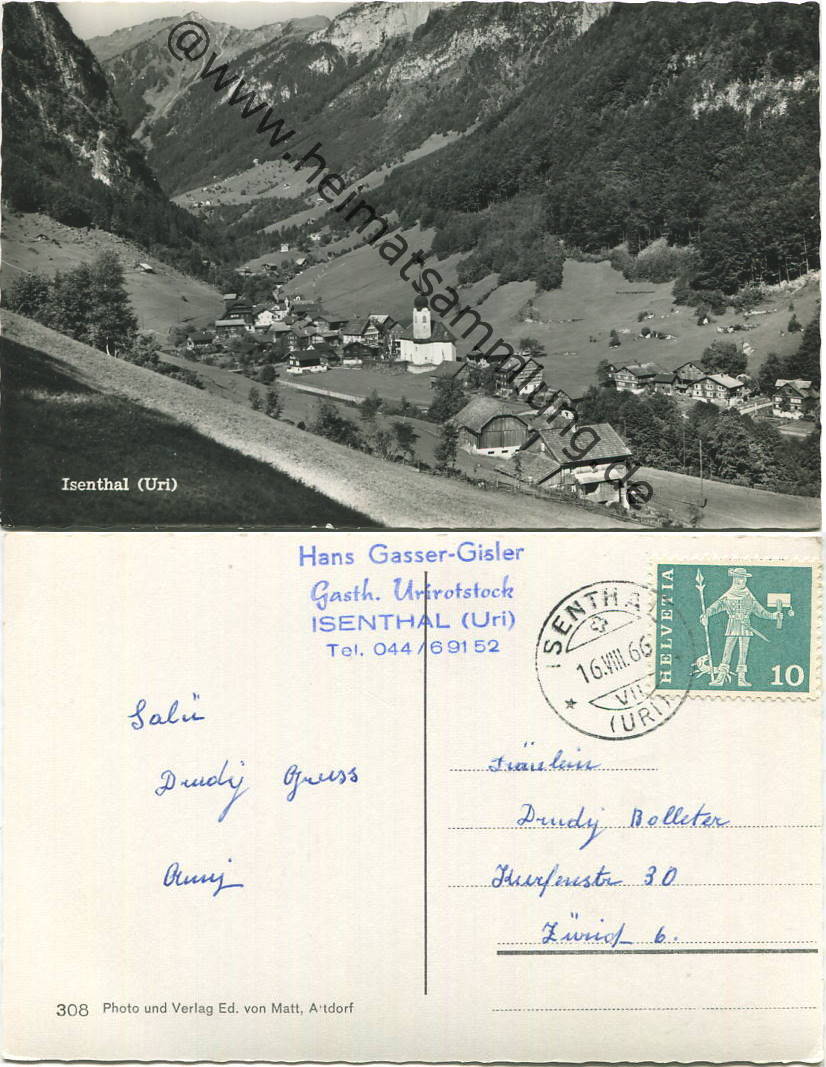 @www.heimatsammlung.de
Isenthal (Uri)
Hans Gasser-Gisler
Gasth. Urirotstock
ISENTHAL (Uri)
Tel. 044/69152
ISENTHAL
16.VIII.66
VII
(URI)
HELVETIA
10
Salü
Drudy Gruss
Anny
Fräulein
Drudy Bolleter
Kurfenstr 30
Zürich 6.
308 Photo und Verlag Ed. von Matt, Altdorf